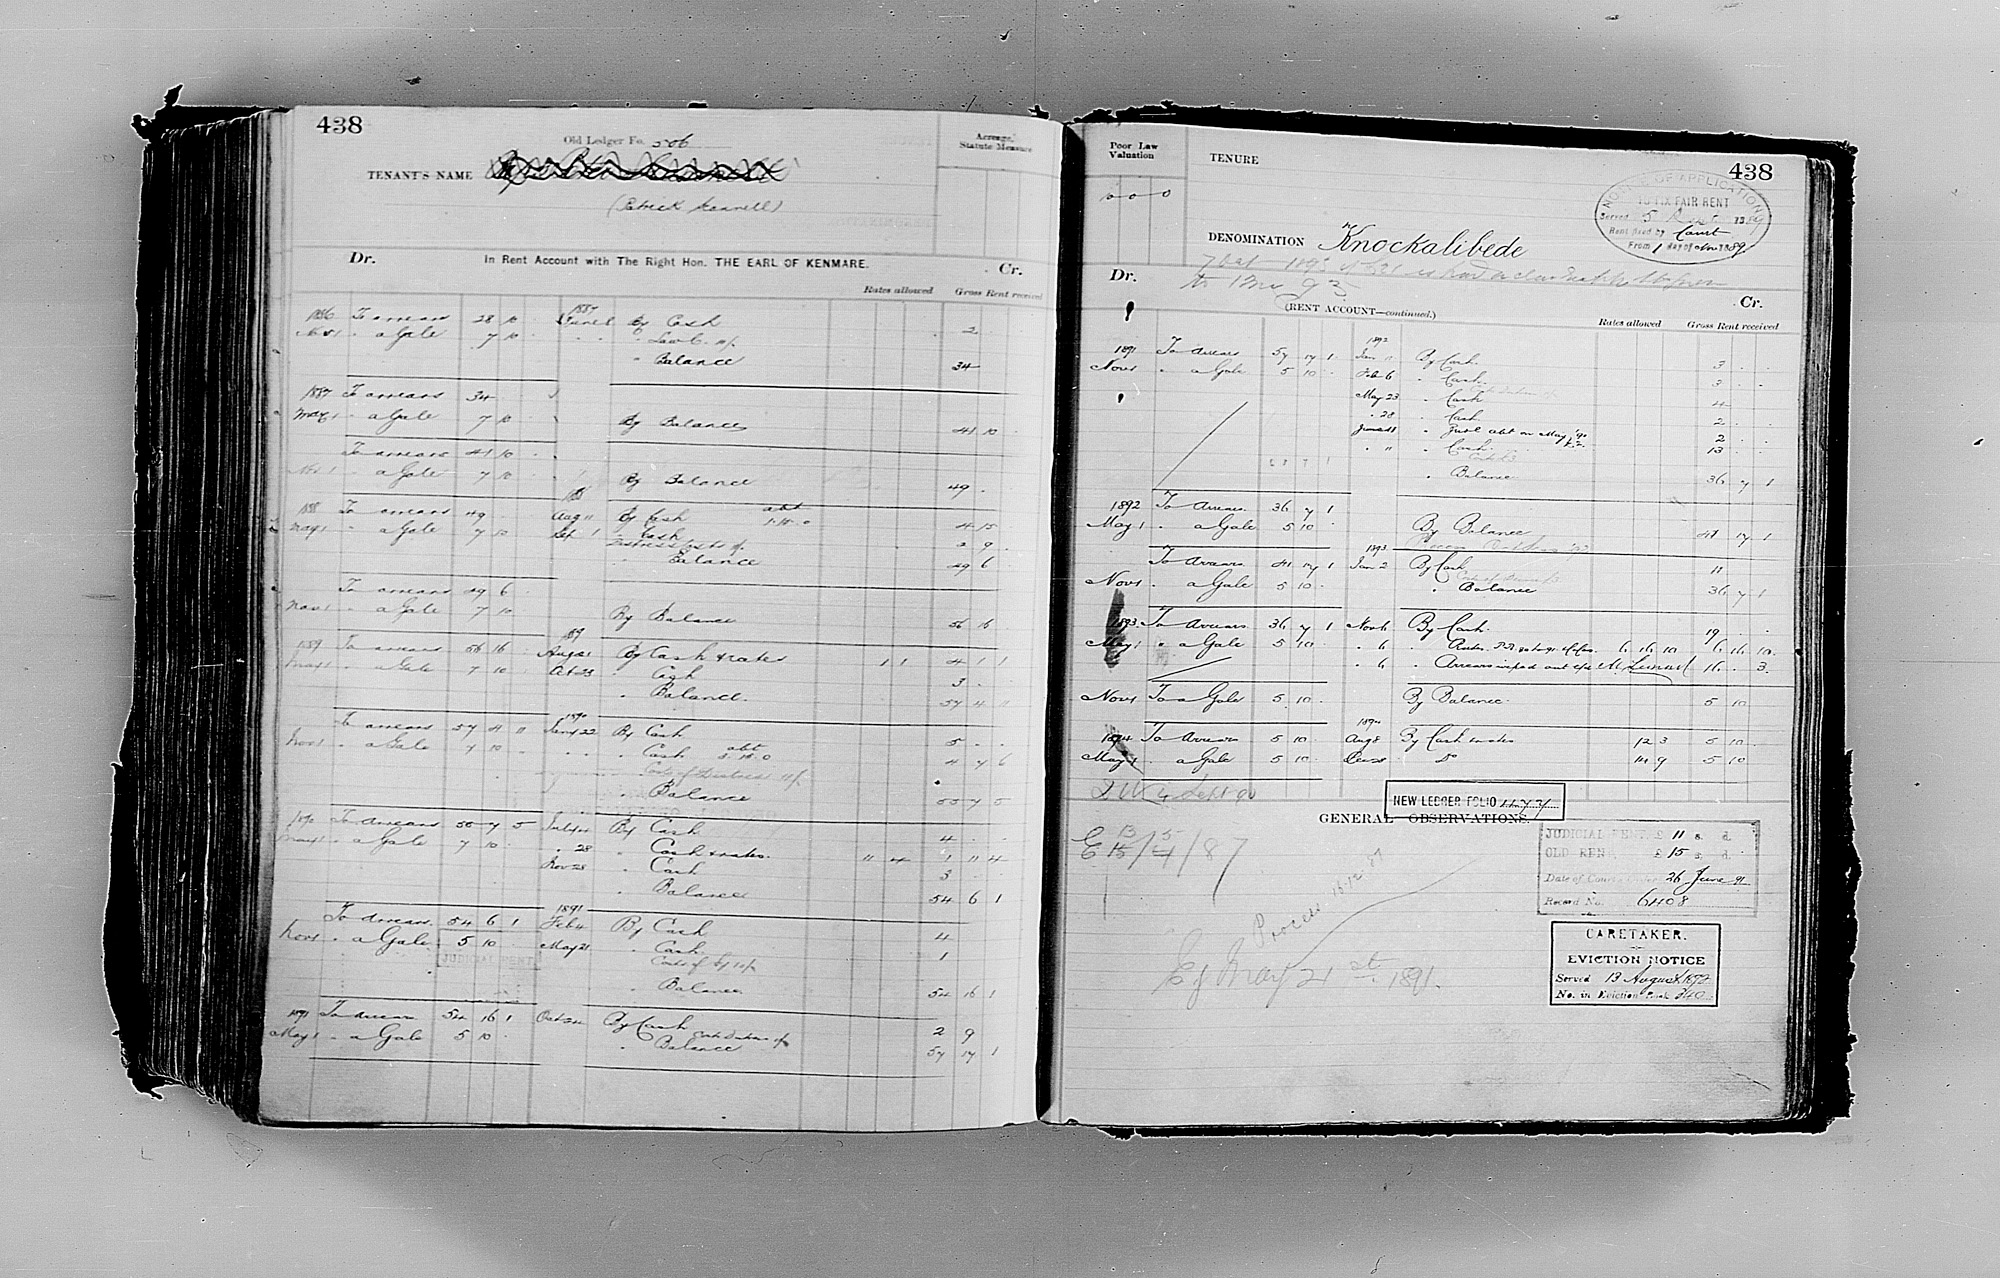 438
Old Ledger Fo. 506
Acreage, Statute Measure
TENANT'S NAME
(Patrick
Dr. In Rent Account with The Right Hon. THE EARL OF KENMARE. Cr.
Rates allowed Gross Rent received
1886 To arrears 28 10 1887 June 8 By Cash 2
Nov 1 " a Gale 7 10
" Balance 34
1887 To arrears 34
May 1 " a Gale 7 10 By Balance 41 10
To arrears 41 10
Nov 1 " a Gale 7 10 By Balance 49
1888 To arrears 49 Aug 11 By Cash 4 15
May 1 " a Gale 7 10 Sep 1 " Cash 2 9
" Balance 49 6
To arrears 49 6
Nov 1 " a Gale 7 10 By Balance 56 16
1889 To arrears 56 16 89 Aug 21 By Cash & rates 1 1 4 1 1
May 1 " a Gale 7 10 Oct 23 " Cash 3
" Balance 57 4 11
To arrears 57 4 11 1890 Jany 22 By Cash 5
Nov 1 " a Gale 7 10 " Cash 4 7 6
Costs of Distress 10/
" Balance 55 7 5
1890 To Arrears 55 7 5 By Cash 4
May 1 " a Gale 7 10 " 28 " Cash & rates 11 4 1 11 4
Nov 28 " Cash 3
" Balance 54 6 1
To Arrears 54 6 1 1891 Feb 4 By Cash 4
Nov 1 " a Gale 5 10 May 21 " Cash 1
JUDICIAL RENT
" Balance 54 16 1
1891 To Arrears 54 16 1 Oct 24 By Cash 2 9
May 1 " a Gale 5 10 " Balance 57 17 1
Poor Law Valuation
TENURE
438
NOTICE OF APPLICATION
TO FIX FAIR RENT
Served 5
Rent fixed by Court
From 1 day of Nov 1889
DENOMINATION Knockalibede
to 1 Nov 93
Dr. Cr.
(RENT ACCOUNT—continued.)
Rates allowed Gross Rent received
1891 To Arrears 57 17 1 1892 Jan 11 By Cash 3
Nov 1 " a Gale 5 10 Feb 6 " Cash 3
May 23 " Cash 4
" 28 " Cash 2
June 11 " Jud. abt on May '90 2
" 11 " Cash 13
" Balance 36 7 1
1892 To Arrears 36 7 1
May 1 " a Gale 5 10 By Balance 41 17 1
To Arrears 41 17 1 1893 Jan 2 By Cash 11
Nov 1 " a Gale 5 10 " Balance 36 7 1
1893 To Arrears 36 7 1 Nov 6 By Cash 19
May 1 " a Gale 5 10 " 6 " 6 16 10 6 16 10
" 6 " Arrears wiped out 16 3
Nov 1 To a Gale 5 10 By Balance 5 10
1894 To Arrears 5 10 1894 Aug 8 By Cash & rates 12 3 5 10
May 1 a Gale 5 10 Do 14 9 5 10
NEW LEDGER FOLIO
GENERAL OBSERVATIONS.
E 13/15 5/4 /87
Process 16.12.87
Ej May 21st 1891.
JUDICIAL RENT £ 11 s. d.
OLD RENT, £ 15 s. d.
Date of Court Order 26 June 91
Record No. 6408
CARETAKER.
EVICTION NOTICE
Served 13 August 1892
No. in Eviction Book 240